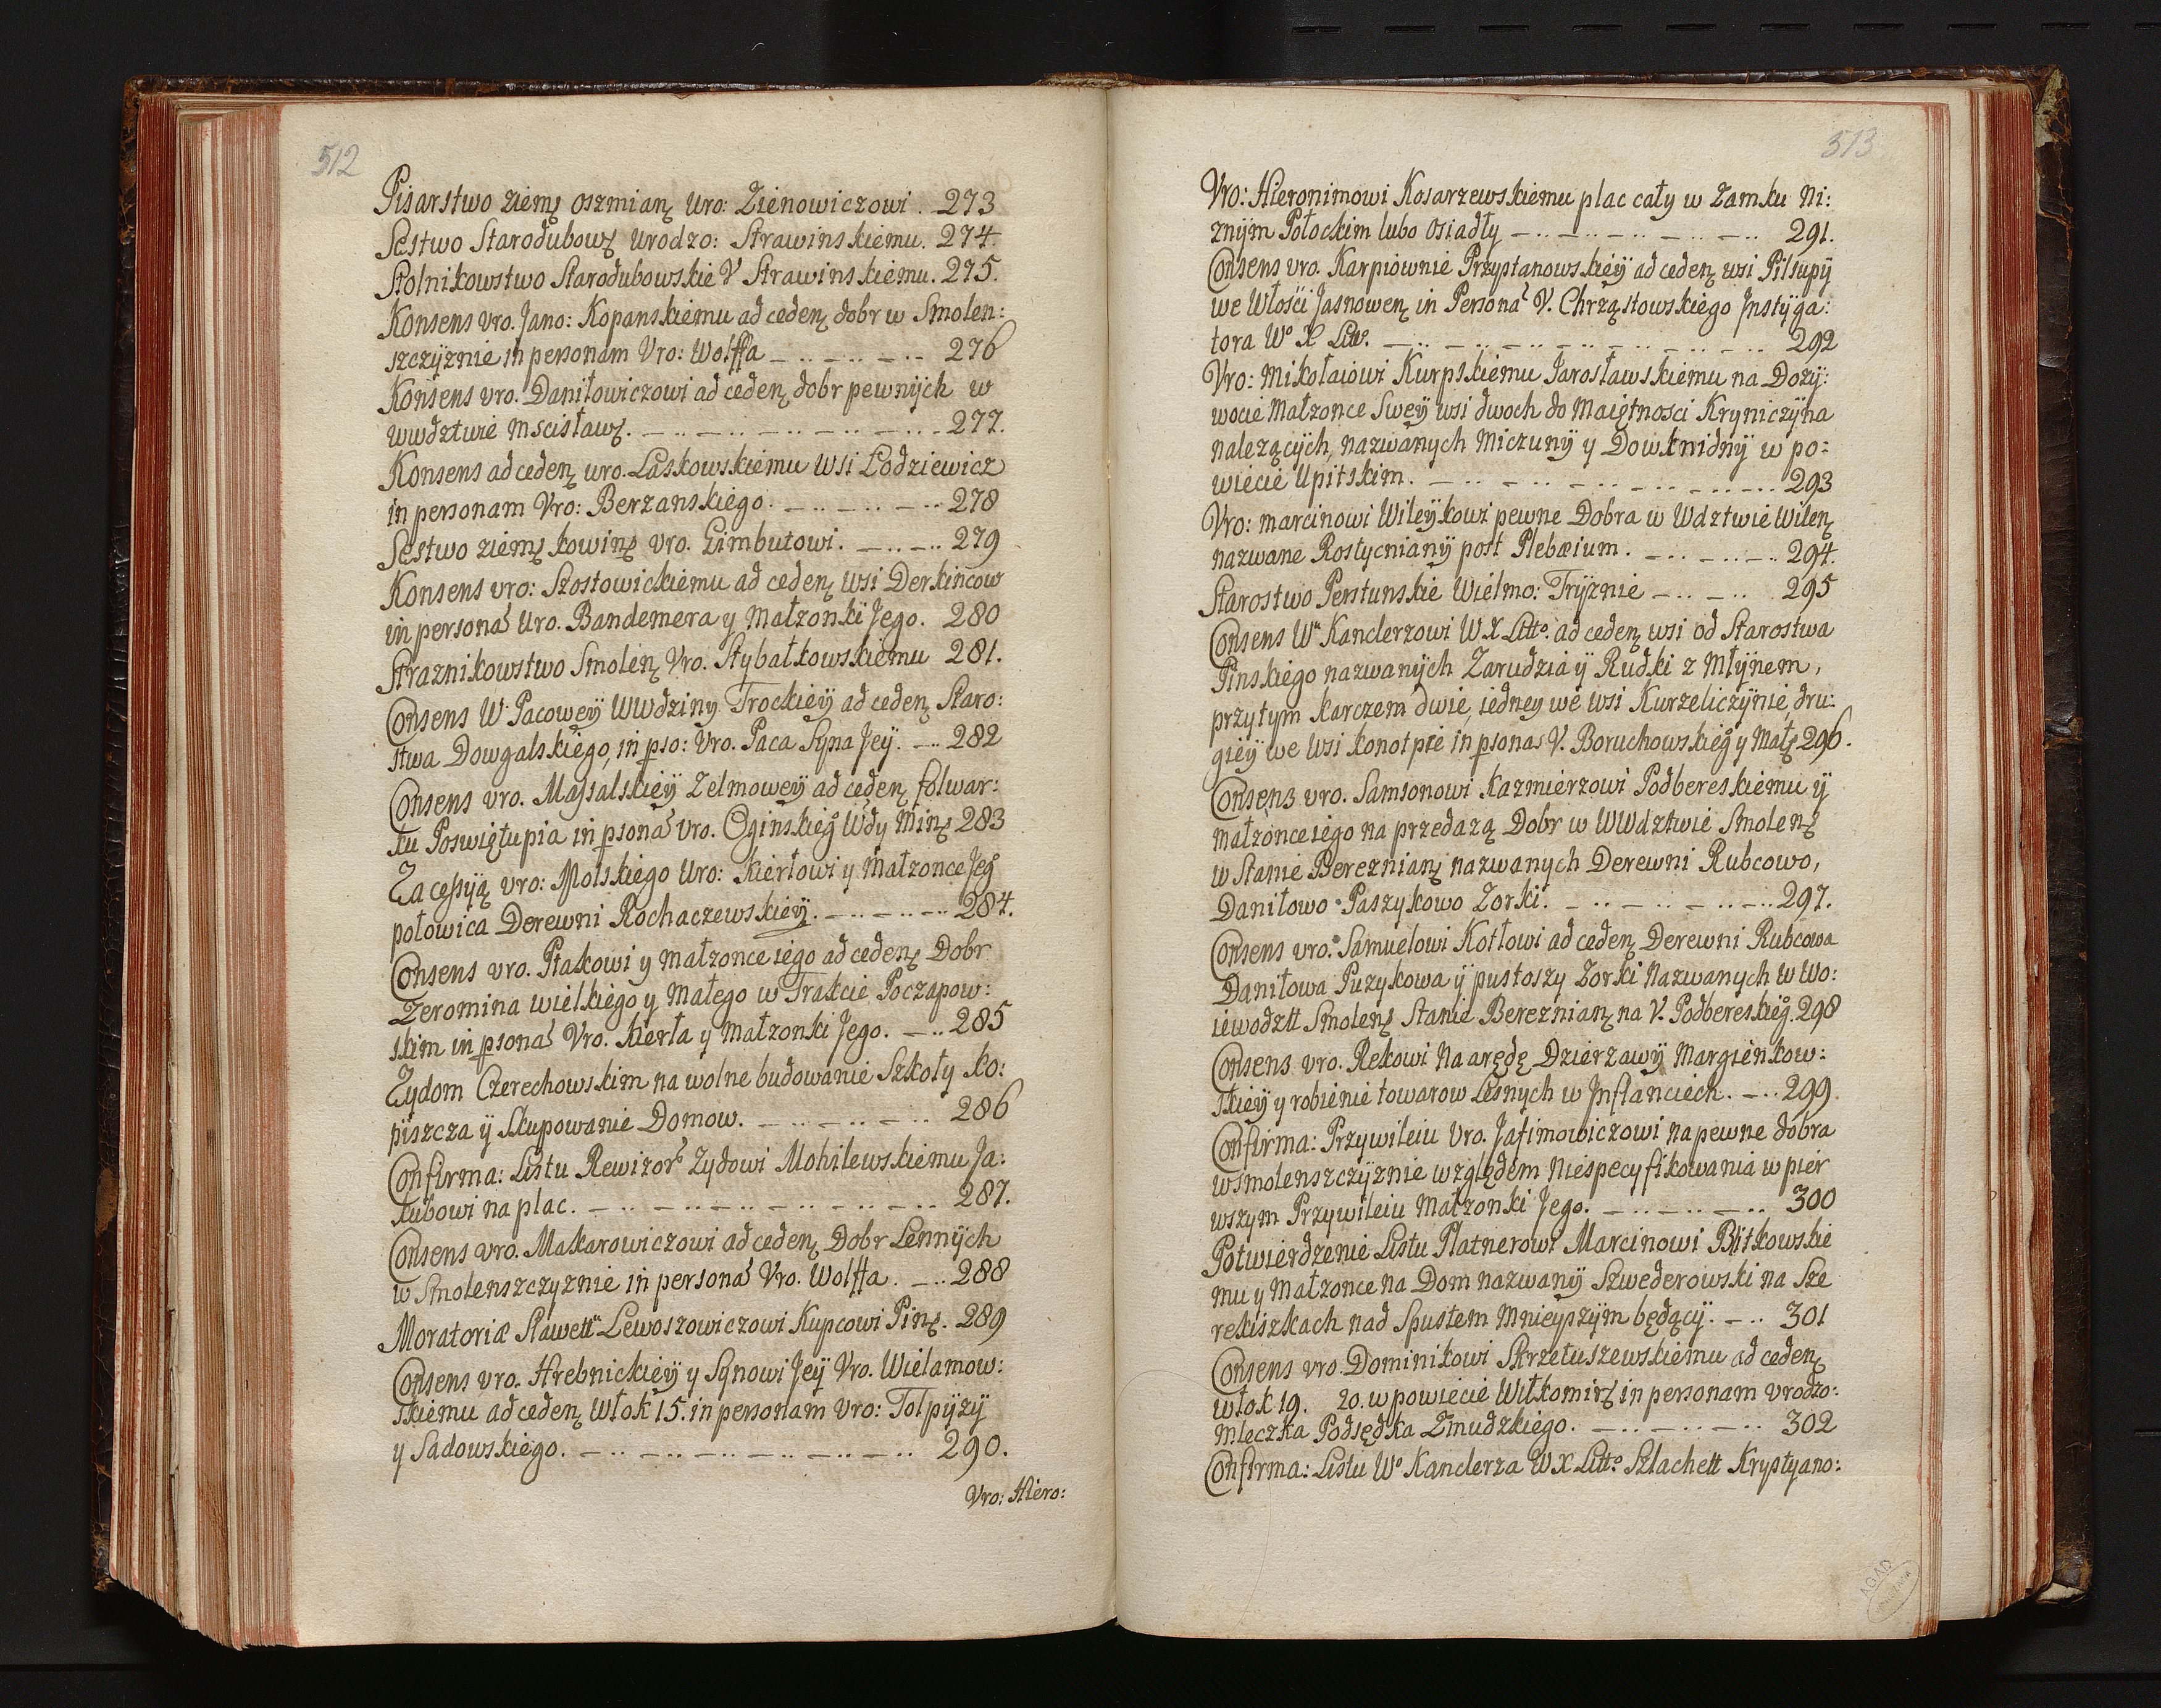 512
Pisarstwo ziemꝫ oszmianꝫ Uro: Zienowiczowi . 273
Sęstwo Starodubowꝫ Urodzo: Strawinskiemu. 274.
Stolnikowstwo Starodubowskie V Strawinskiemu. 275.
Konsens vro. Jano: Kopanskiemu ad cedenꝫ dobr w Smolen:
szczÿznie in personam Vro: Wolffa 276
Konsens vro. Daniłowiczowi ad cedenꝫ dobr pewnÿch w
wwdztwie Mscisławꝫ. 277.
Konsens ad cedenꝫ uro. Laskowskiemu Wsi Łodziewicz
in personam Vro: Berzanskiego. 278
Sęstwo ziemꝫ kowinꝫ vro. Gimbutowi. 279
Konsens vro: Szostowickiemu ad cedenꝫ Wsi Derkincow
in persona Uro. Bandemera y Małzonki Jego. 280
Straznikowstwo Smolenꝫ Vro. Stybałkowskiemu 281.
Consens W. Pacoweÿ WWdziny Trockieÿ ad cedenꝫ Staro:
stwa Dowgalskiego, in pso: Vro. Paca Syna Jeÿ. 282
Consens vro. Massalskieÿ Zelmoweÿ ad cedenꝫ folwar:
ku Poswiętupia in psona Vro. Oginskieg Wdy Minꝫ 283
Za cessÿą vro: Molskiego Uro: Kierłowi y Małzonce Jeg
połowica Derewni Rochaczewskieÿ. 284.
Consens vro. Ptakowi y małzonce iego ad cedenꝫ Dobr
Zeromina wielkiego y Małego w Trakcie Poczapow:
skim in psona Vro. Kierła y Małzonki Jego. 285
Zydom Czerechowskim na wolne budowanie Szkoły ko:
piszcza ÿ Skupowanie Domow. 286
Confirma: Listu Rewizor Zydowi Mohilewskiemu Ja:
kubowi na plac. 287.
Consens vro. Makarowiczowi ad cedenꝫ Dobr Lennÿch
w Smolenszczyznie in persona Vro. Wolffa. 288
Moratoriæ Sławett Lewoszowiczowi Kupcowi Pinꝫ. 289
Consens vro. Hrebnickieÿ y Synowi Jeÿ Vro. Wielamow:
skiemu ad cedenꝫ Włok 15. in personam Vro: Tołpÿzÿ
y Sadowskiego. 290.
Vro: Hiero:
513
Vro: Hieronimowi Kosarzewskiemu plac cały w Zamku Ni:
znÿm Połockim lubo osiadły 291.
Consens vro. Karpiownie Przystanowskiéÿ ad cedenꝫ wsi Pilsupÿ
we Włości Jasnowenꝫ in Persona V. Chrząstowskiego Jnstÿga:
tora Wº X Litº. 292
Vro: Mikołaiowi Kurpskiemu Jarosławskiemu na Dozÿ:
wocie Małzonce Sweÿ wsi dwoch do Maiętnosci Kryniczÿna
nalezącÿch, nazwanych Miczunÿ y Dowknidnÿ w po:
wiecie Upitskim. 293
Vro: marcinowi Wileÿkowi pewne Dobra w Wdztwie Wilenꝫ
nazwane Rostycnianÿ post Plebæium. 294.
Starostwo Perstunskie Wielmo: Trÿznie 295
Consens Wº Kanclerzowi W X Littº. ad cedenꝫ wsi od Starostwa
Pinskiego nazwanÿch Zarudzia ÿ Rudki z Młÿnem,
przytym karczem dwie, iedney we wsi Kurzeliczÿnie, dru:
gieÿ we wsi konotpie in psona V. Boruchowskieg y Małꝫ 296.
Consens vro. Samsonowi Kazmierzowi Podbereskiemu ÿ
małzonce iego na przedazą Dobr w WWdztwie Smolenꝫ
w Stanie Bereznianꝫ nazwanych Derewni Rubcowo,
Daniłowo Paszykowo Zorki. 297.
Consens vro. Samuelowi Kotłowi ad cedenꝫ Derewni Rubcowa
Daniłowa Puzykowa ÿ pustoszy Zorki Nazwanych w Wo:
iewodztt Smolenꝫ Stanie Bereznianꝫ na V. Podbereskieg. 298
Consens vro. Rekowi Na arędę Dzierzawÿ Margienkow:
skieÿ y robienie towarow Lesnych w Jnflanciech. 299.
Confirma: Przywileiu Vro. Jafimowiczowi na pewne dobra
w Smolenszczÿznie względem Niespecyfikowania w pier
wszym Przywileiu Małzonki Jego. 300
Potwierdzenie Listu Płatnerowi Marcinowi Blitkowskie
mu y Małzonce na Dom nazwanÿ Szwederowski na Sze
rekiszkach nad Spustem Mnieyszÿm będącÿ. 301
Consens vro. Dominikowi Skrzetuszewskiemu ad cedenꝫ
włok 19. 20. w powiecie Wiłkomirꝫ in personam vrodzo:
Mleczka Podsędka Zmudzkiego. 302
Confirma: Listu Wº Kanclerza W X Littº Szlachett Krystyano:
AGAD